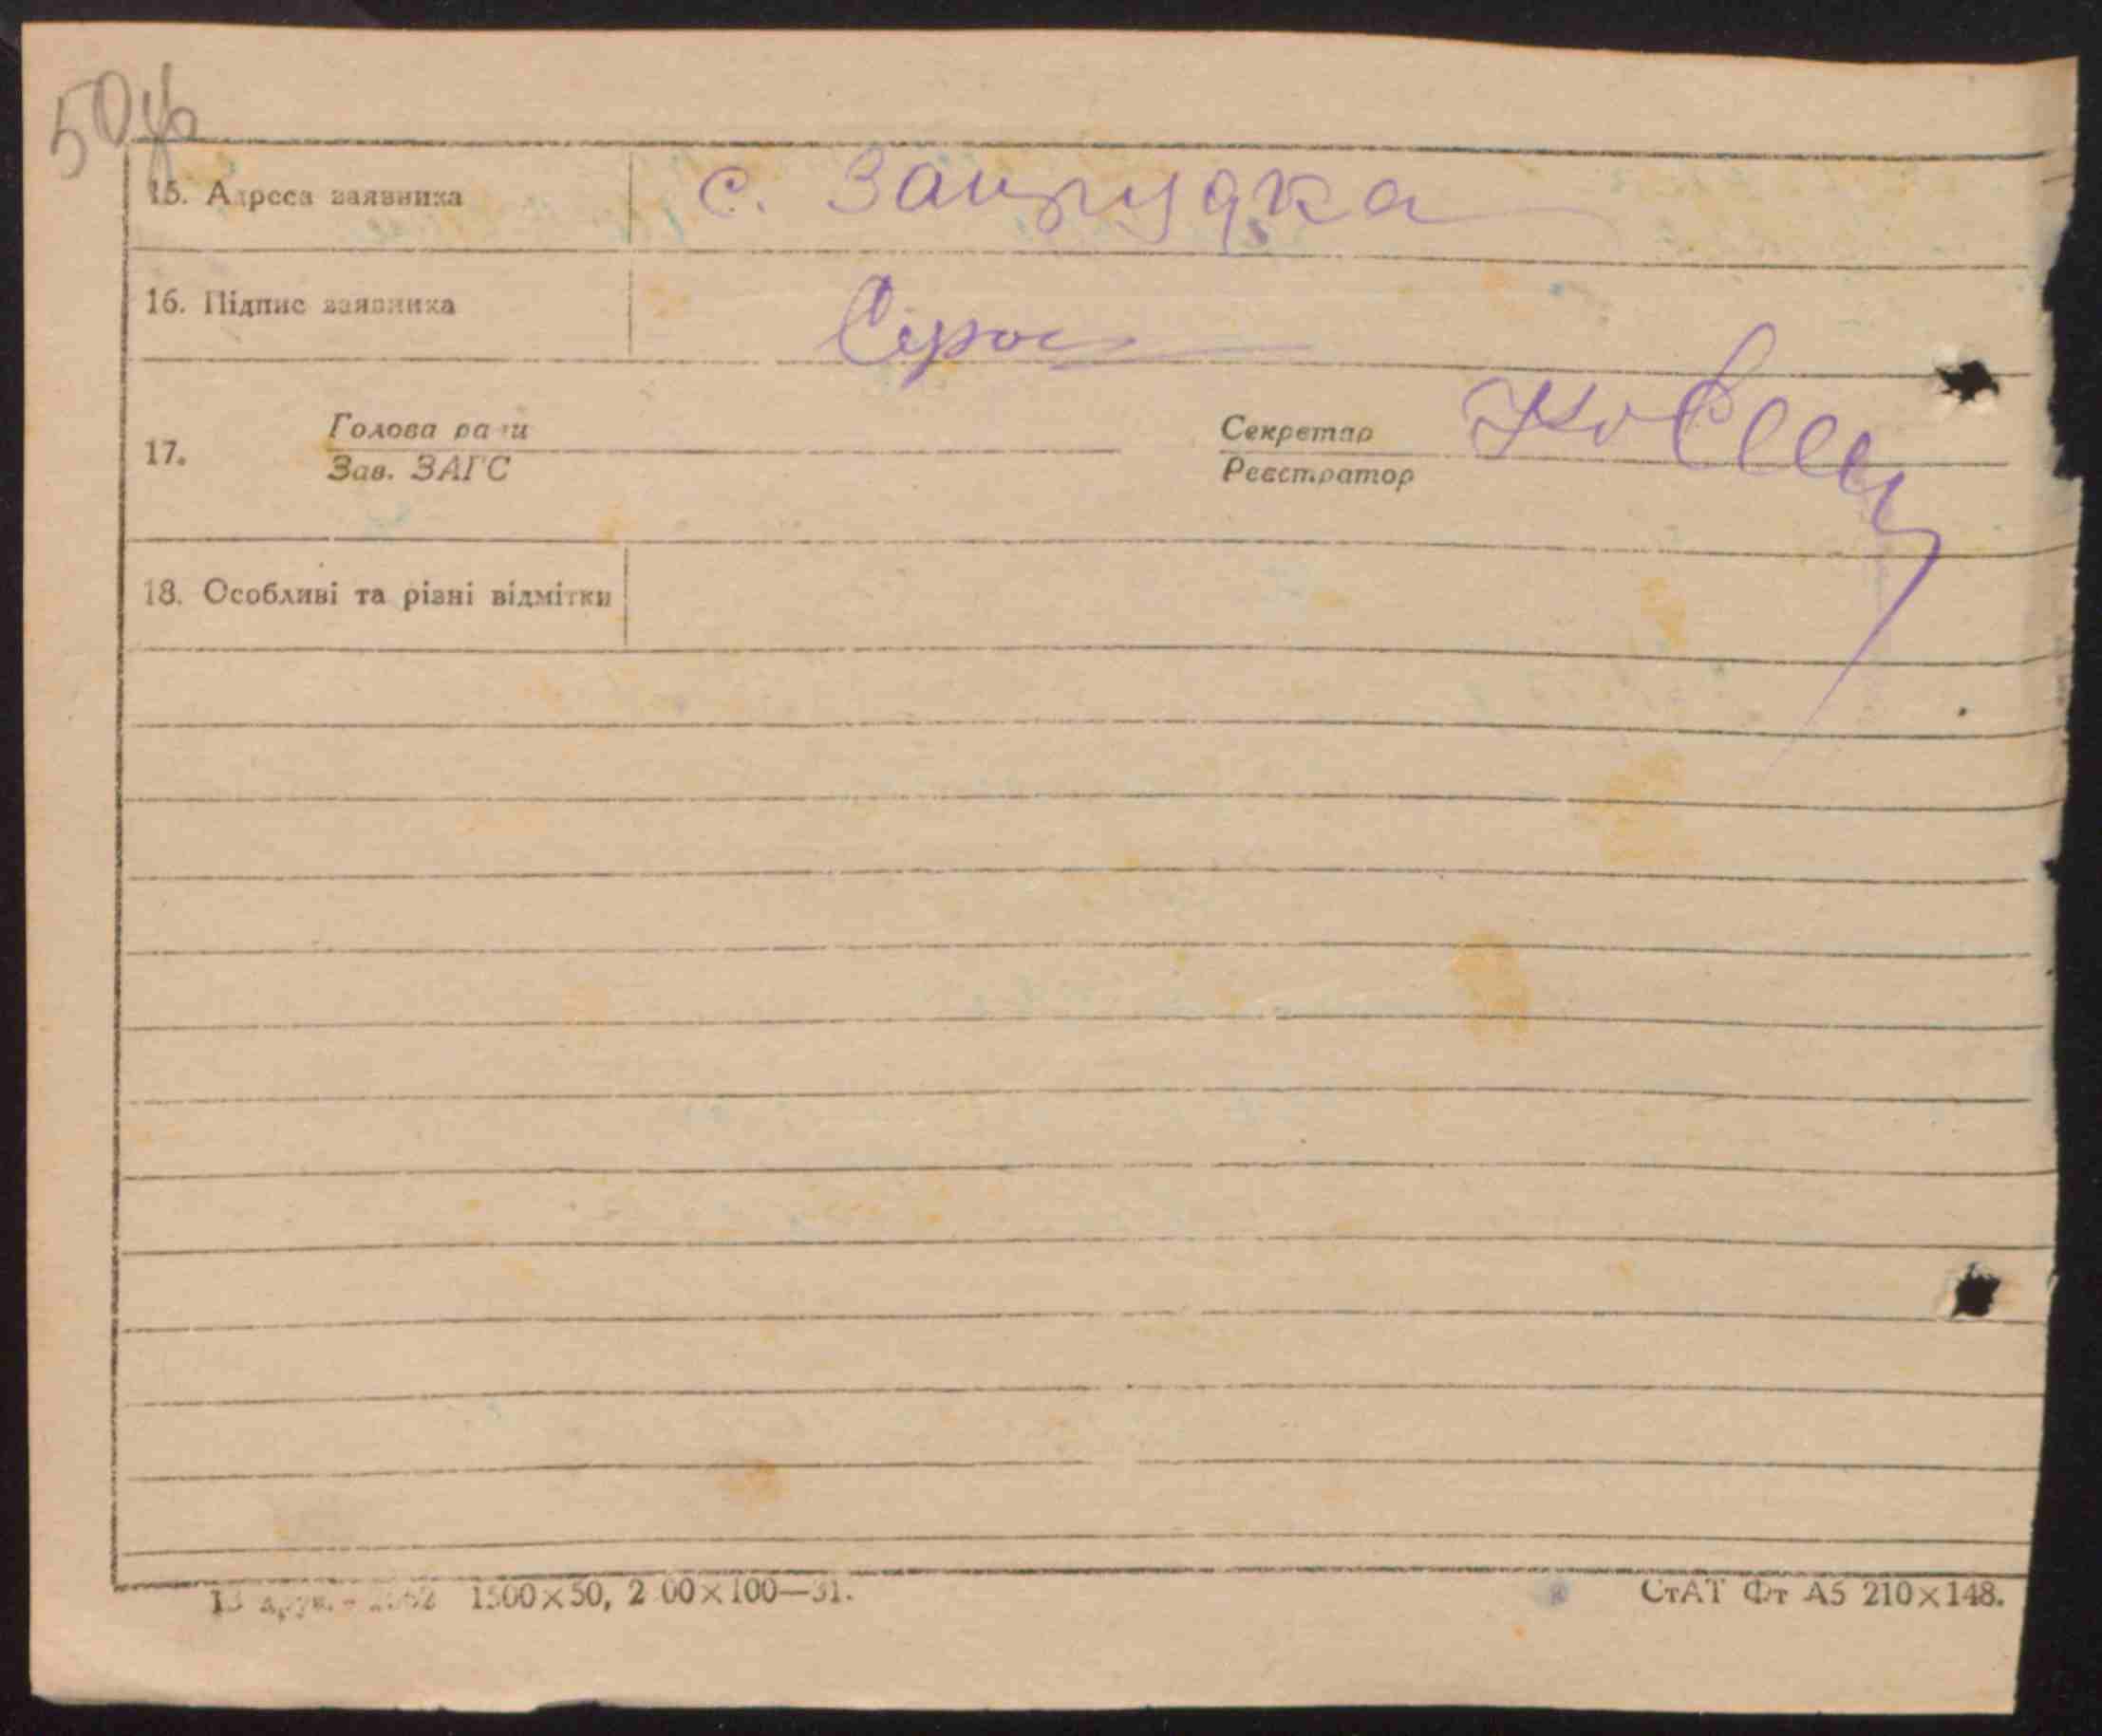 50
15. Адреса заявника с. Запрудка
16. Підпис заявника
17. Голова ради Секретар
Зав. ЗАГС Реєстратор
18. Особливі та різні відмітки
1500×50, 2 00×100—31. СтАТ Фт А5 210×148.